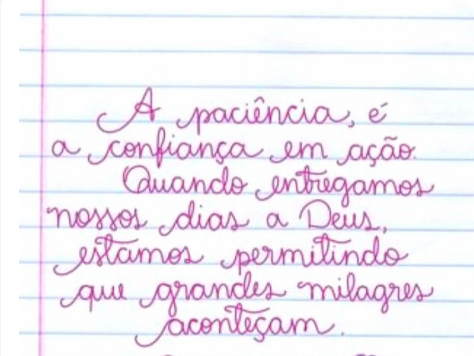 A paciência, é
a confiança em ação.
Quando entregamos
nossos dias a Deus,
estamos permitindo
que grandes milagres
aconteçam.